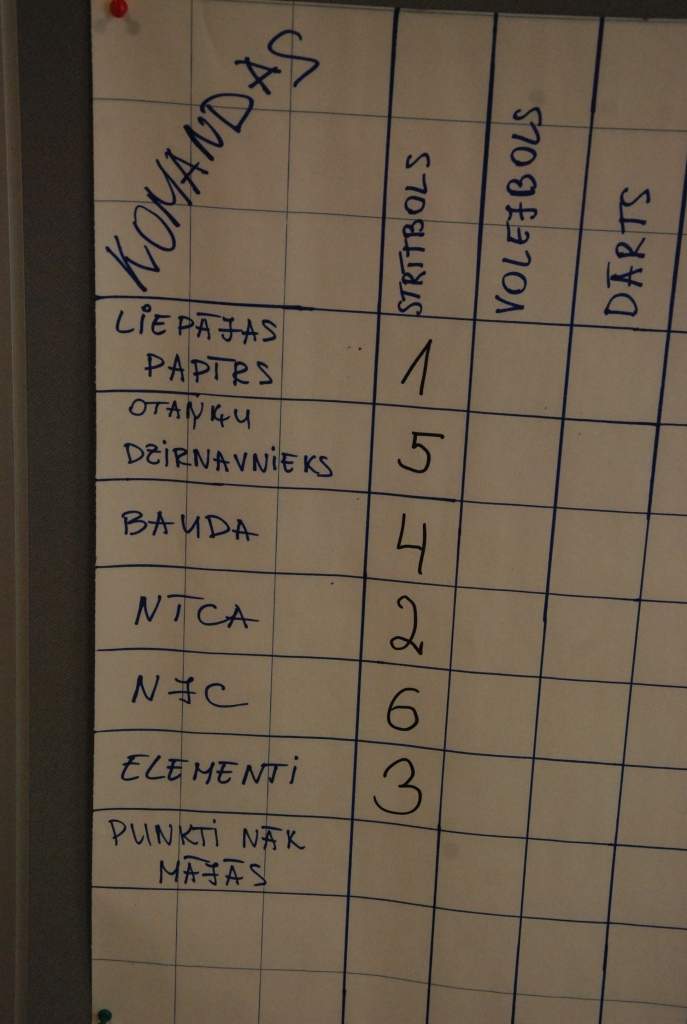 KOMANDAS
STRĪTBOLS
VOLEJBOLS
DĀRTS
LIEPĀJAS
PAPĪRS
1
OTAŅĶU
DZIRNAVNIEKS
5
BAUDA
4
NTCA
2
NJC
6
ELEMENTI
3
PUNKTI NĀK
MĀJĀS